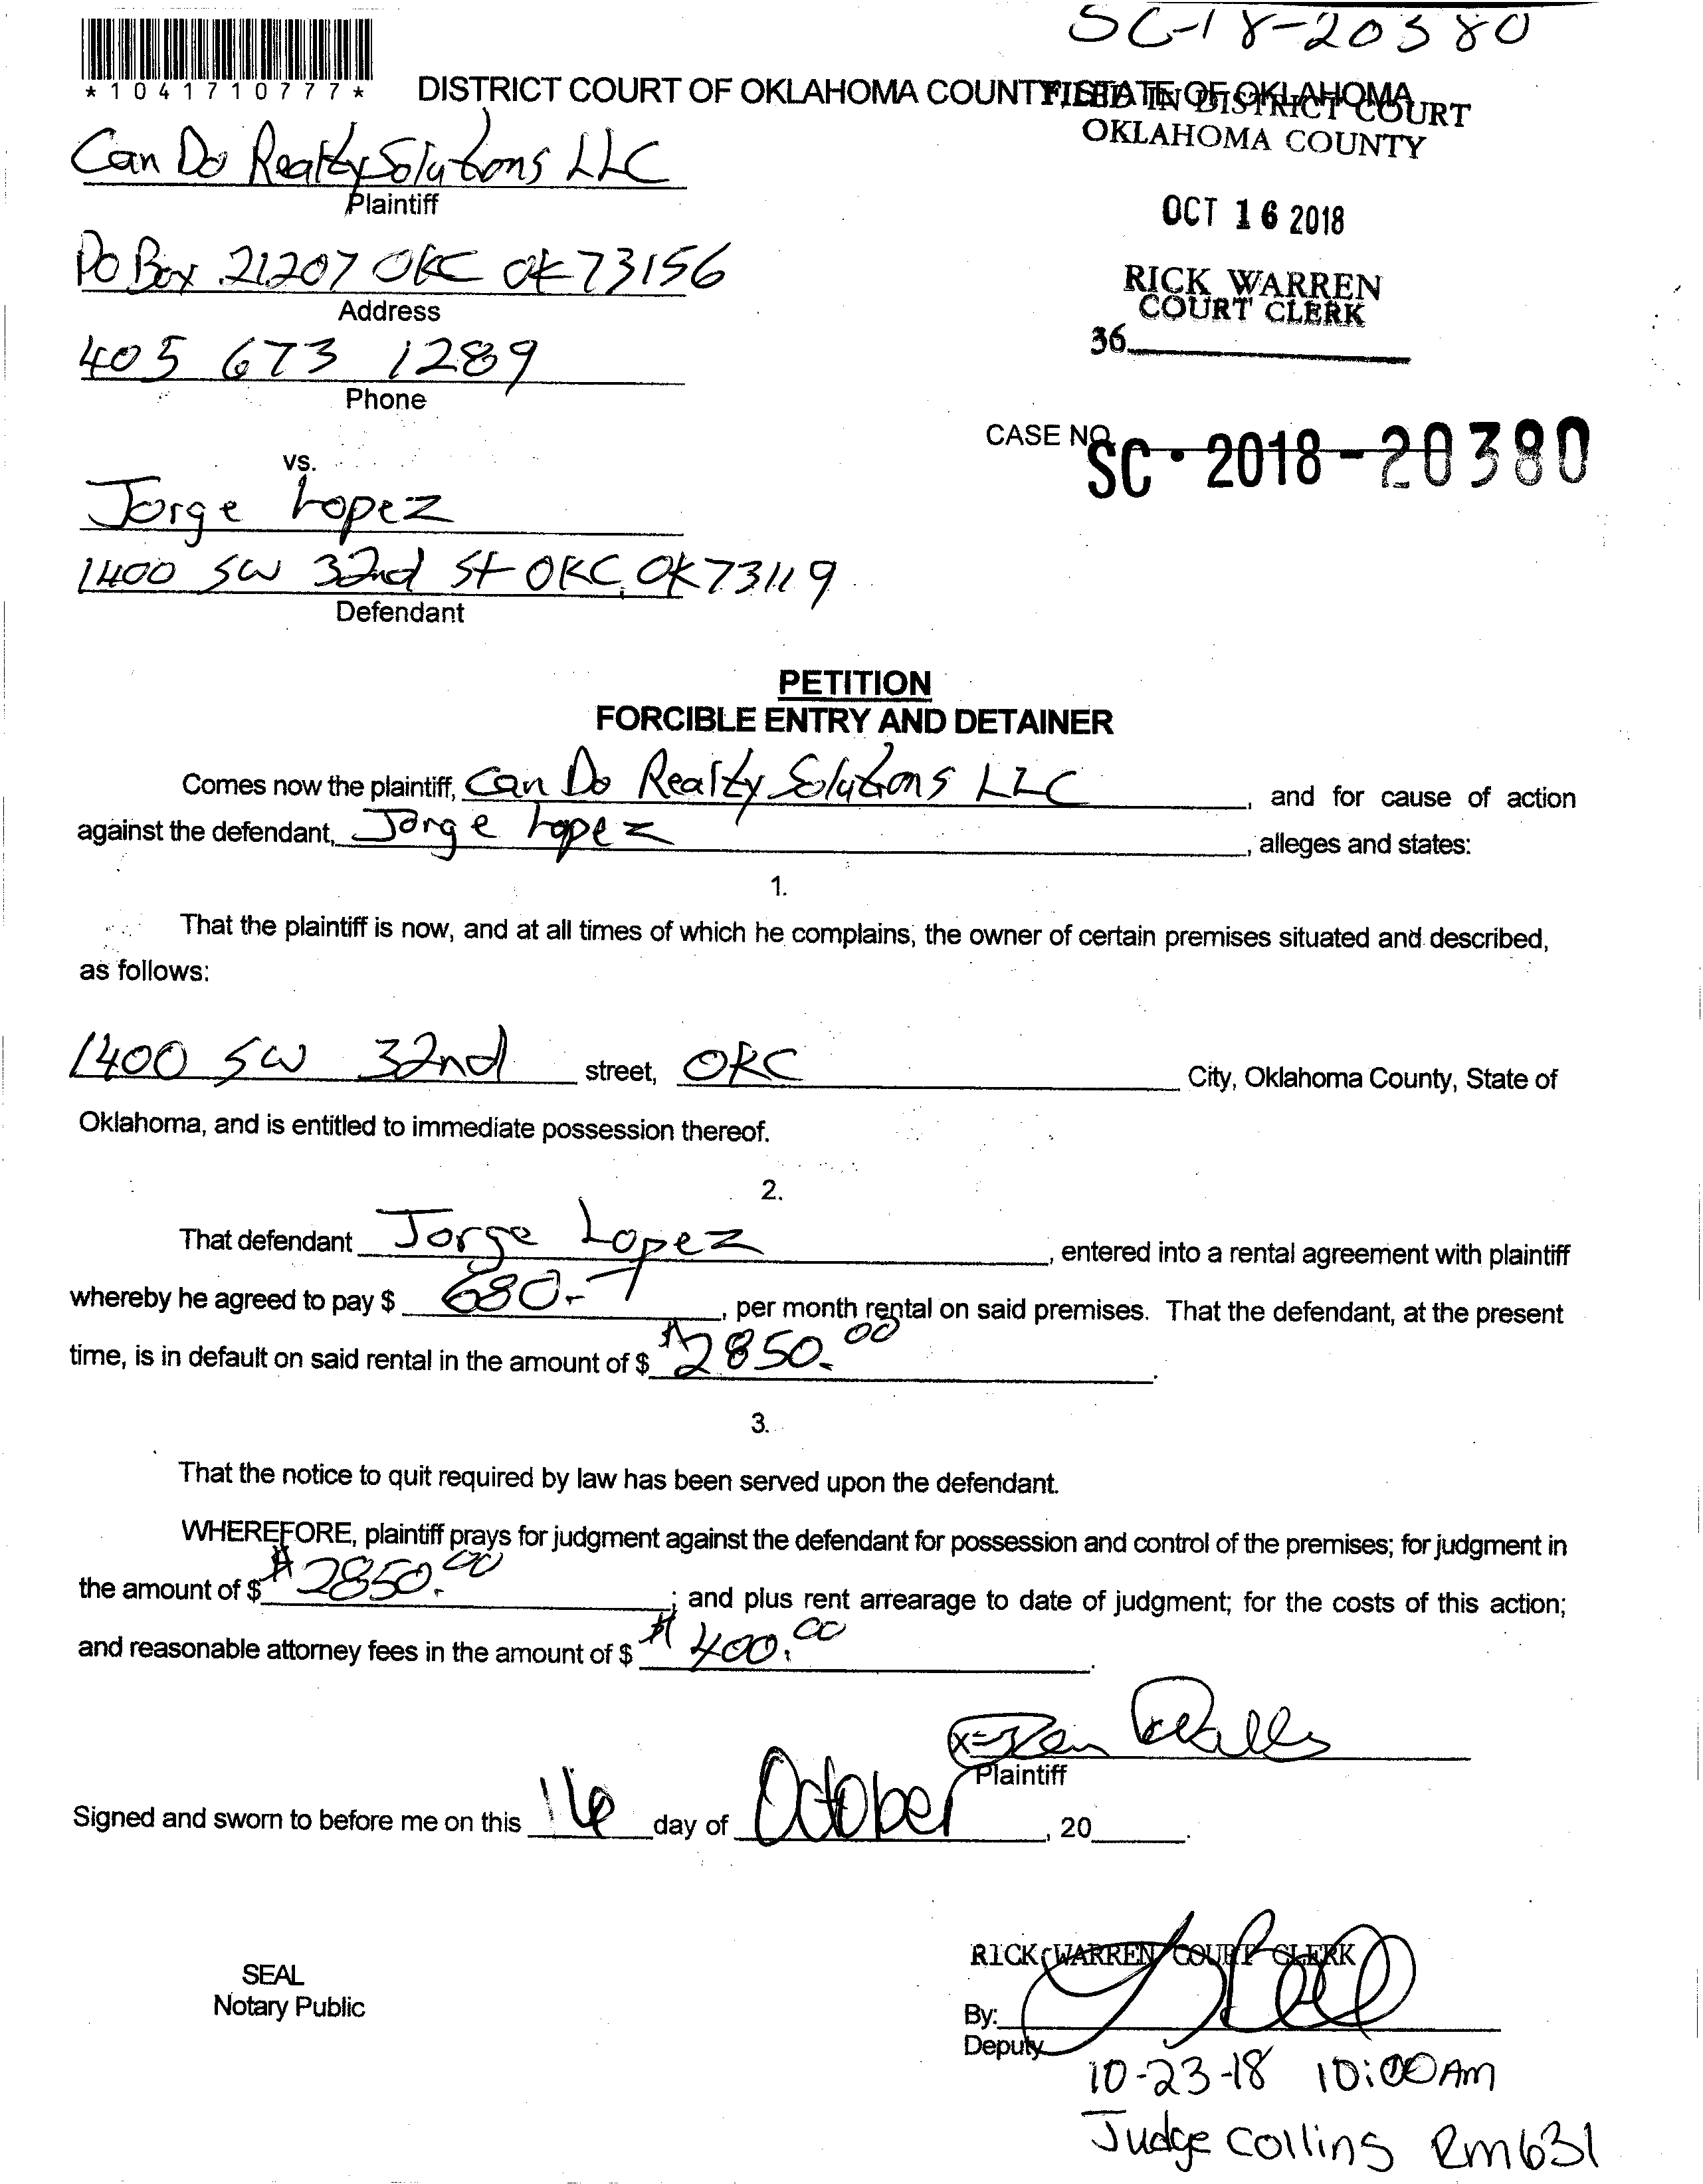 SC-18-20380
*1041710777*
DISTRICT COURT OF OKLAHOMA COUNTY, STATE OF OKLAHOMA
FILED IN DISTRICT COURT
OKLAHOMA COUNTY
Can Do Realty Solutions LLC
Plaintiff
OCT 16 2018
PO Box 21207 OKC OK 73156
Address
RICK WARREN
COURT CLERK
36
405 673 1289
Phone
CASE NO. SC-2018-20380
vs.
Jorge Lopez
1400 SW 32nd St OKC, OK 73119
Defendant
PETITION
FORCIBLE ENTRY AND DETAINER
Comes now the plaintiff, Can Do Realty Solutions LLC, and for cause of action
against the defendant, Jorge Lopez, alleges and states:
1.
That the plaintiff is now, and at all times of which he complains, the owner of certain premises situated and described,
as follows:
1400 SW 32nd street, OKC City, Oklahoma County, State of
Oklahoma, and is entitled to immediate possession thereof.
2.
That defendant Jorge Lopez, entered into a rental agreement with plaintiff
whereby he agreed to pay $ 680.-, per month rental on said premises. That the defendant, at the present
time, is in default on said rental in the amount of $ $2850.00.
3.
That the notice to quit required by law has been served upon the defendant.
WHEREFORE, plaintiff prays for judgment against the defendant for possession and control of the premises; for judgment in
the amount of $ $2850.00; and plus rent arrearage to date of judgment; for the costs of this action;
and reasonable attorney fees in the amount of $ $400.00.
x Ken Walls
Plaintiff
Signed and sworn to before me on this 16 day of October, 20___.
RICK WARREN COURT CLERK
SEAL
Notary Public
By:
Deputy
10-23-18 10:00 Am
Judge Collins Rm 631